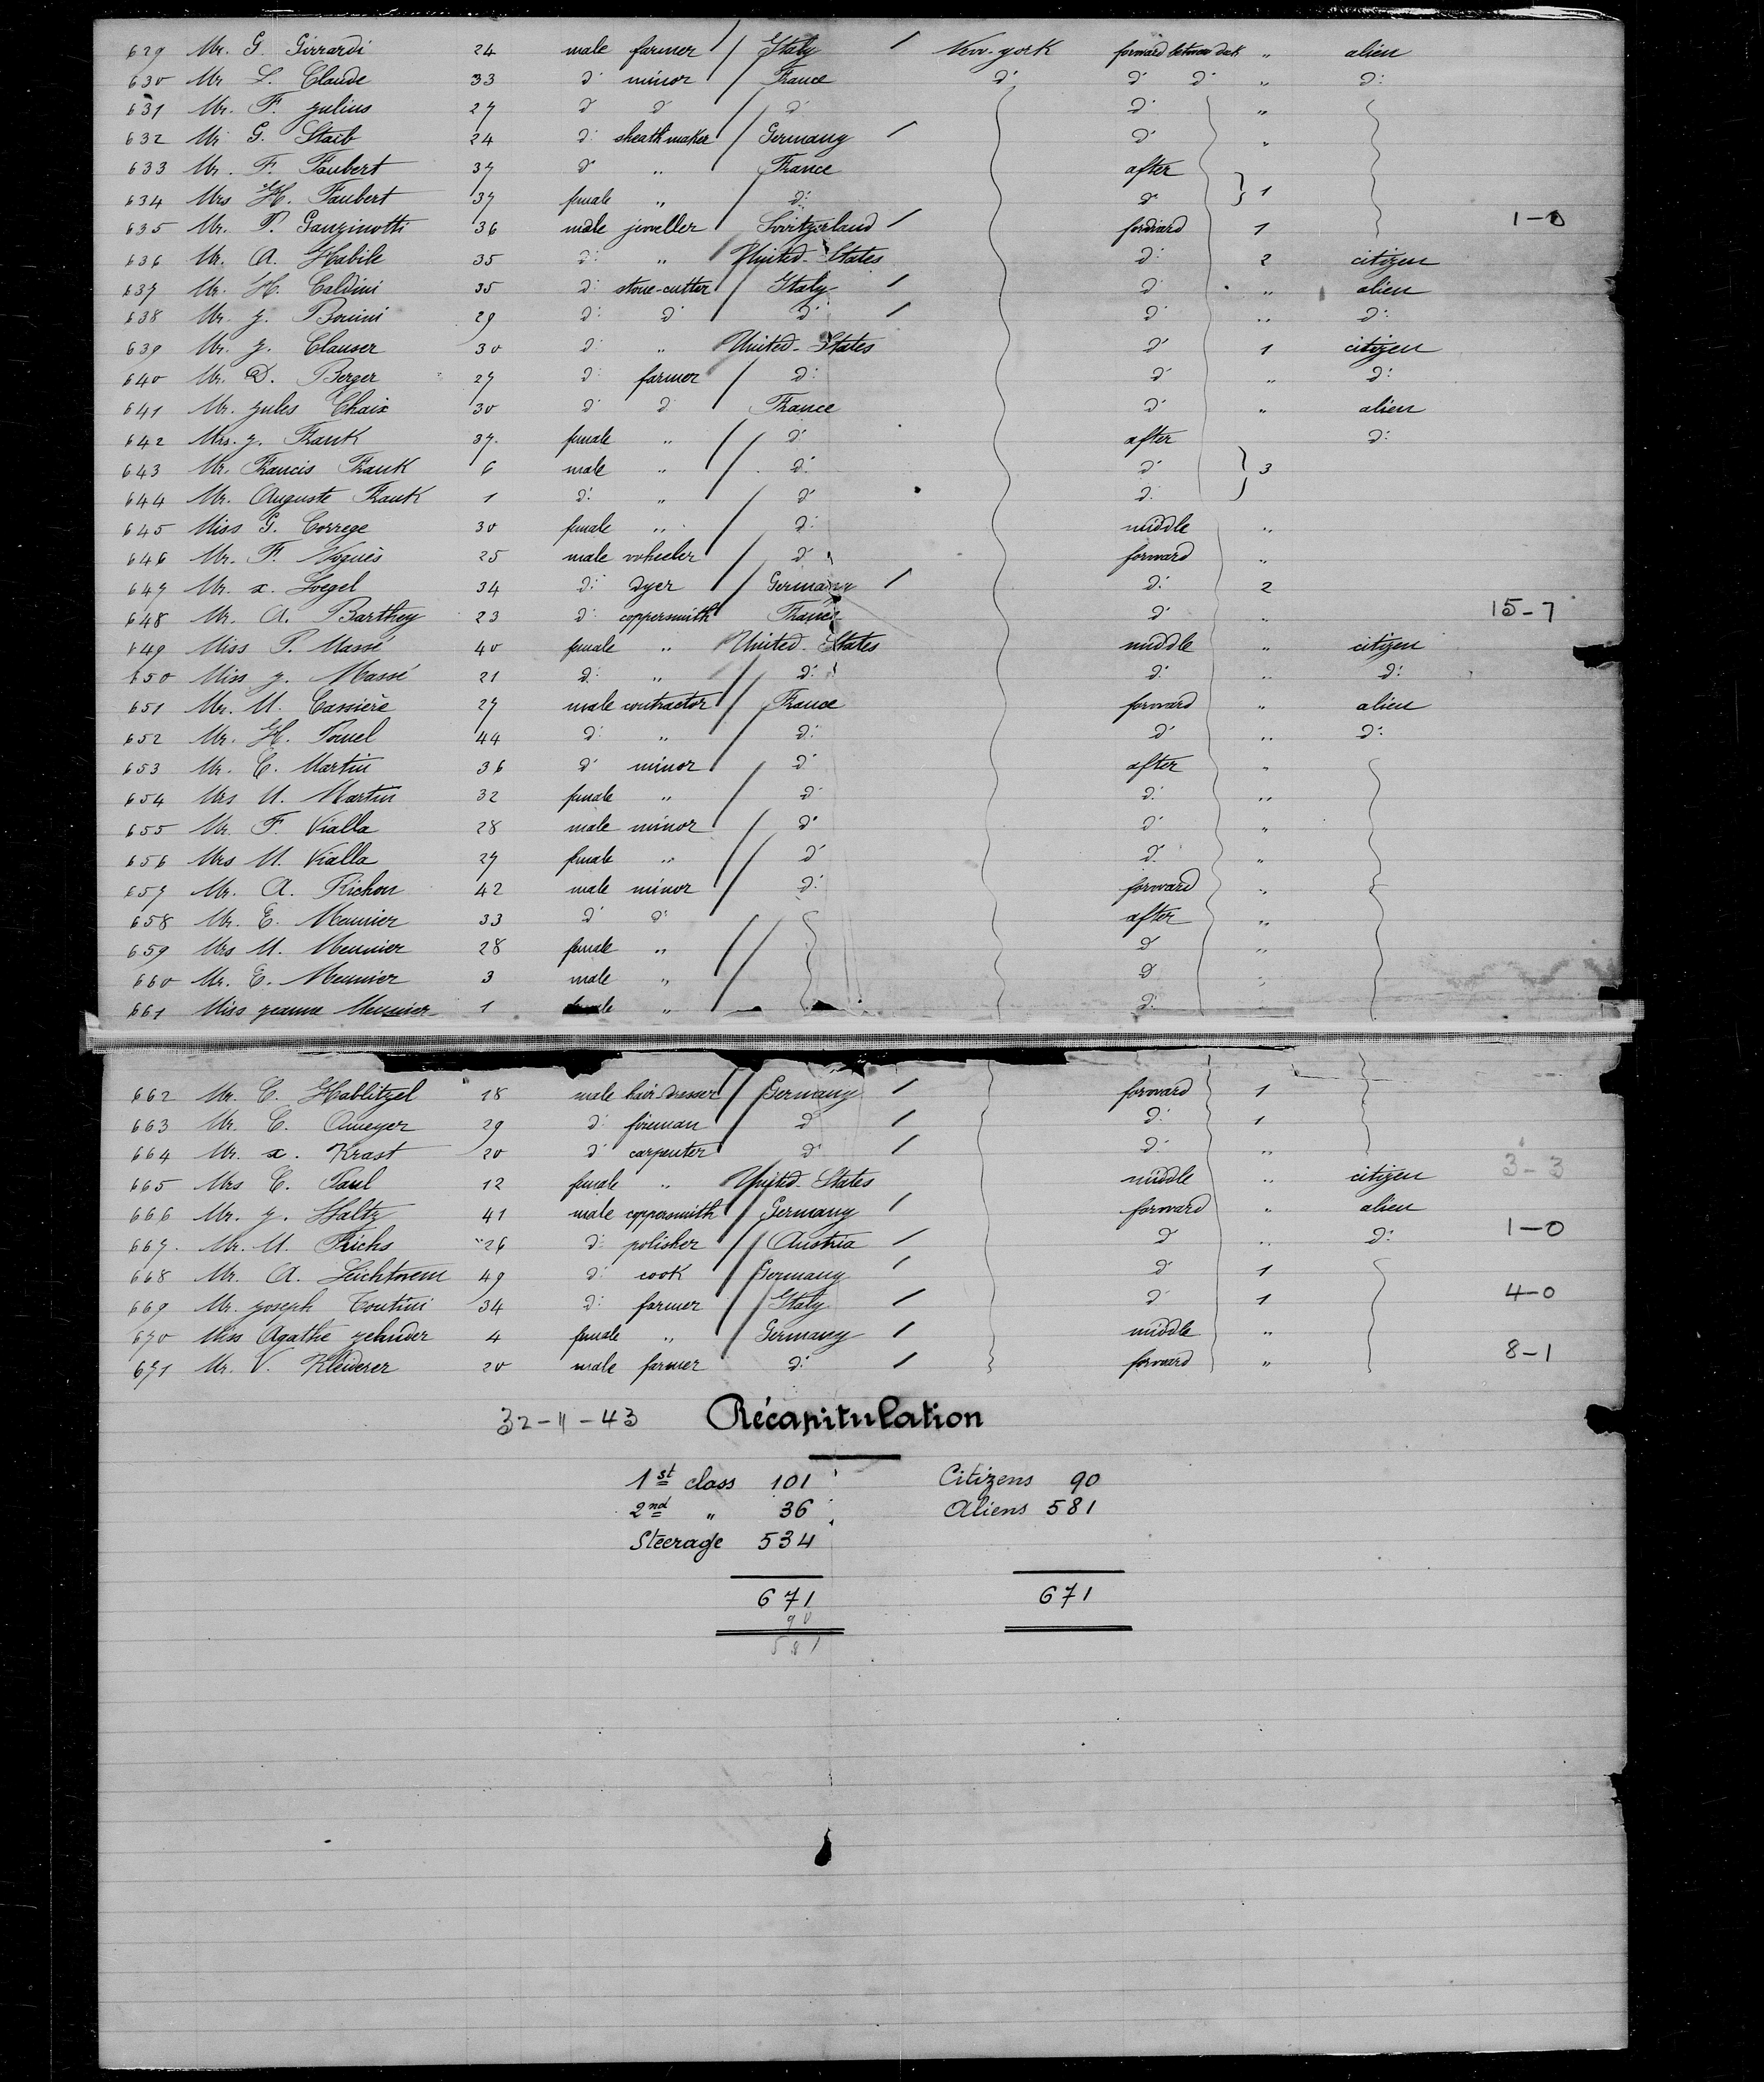 629 Mr. G. Girrardi 24 male farmer / Italy / New-york forward between deck " alien
630 Mr L. Claude 33 d° minor / France d° d° d° " d°
631 Mr. F. Julius 27 d° d° / d° d° "
632 Mr G. Staib 24 d° sheath maker / Germany / d° "
633 Mr. F. Faubert 37 d° " / France after
634 Mrs H. Faubert 37 female " / d° d° } 1
635 Mr. P. Ganzinotti 36 male jeweller / Switzerland / forward 1 1-0
636 Mr. A. Habile 35 d° " / United-States d° 2 citizen
637 Mr. H. Caldini 35 d° stone-cutter / Italy / d° " alien
638 Mr. J. Bonini 29 d° d° / d° / d° " d°
639 Mr. J. Clauser 30 d° " United-States d° 1 citizen
640 Mr. D. Berger 27 d° farmer / d° d° " d°
641 Mr. Jules Chaix 30 d° d° / France d° " alien
642 Mrs. J. Frank 37 female " / d° after d°
643 Mr. Francis Frank 6 male " / d° d° } 3
644 Mr. Auguste Frank 1 d° " / d° d°
645 Miss G. Correge 30 female " / d° middle "
646 Mr. F. Noguès 25 male wheeler / d° forward "
647 Mr. x. Loegel 34 d° dyer / Germany / d° 2
648 Mr. A. Barthey 23 d° coppersmith France d° " 15-7
649 Miss P. Massé 40 female " United-States middle " citizen
650 Miss J. Massé 21 d° " / d° d° " d°
651 Mr. M. Cassière 27 male contractor / France forward " alien
652 Mr. H. 44 d° " / d° d° " d°
653 Mr. C. Martin 36 d° minor / d° after "
654 Mrs M. Martin 32 female " / d° d° "
655 Mr. F. Vialla 28 male minor / d° d° "
656 Mrs M. Vialla 27 female " / d° d° "
657 Mr. A. Richon 42 male minor / d° forward "
658 Mr. E. Meunier 33 d° d° / after "
659 Mrs M. Meunier 28 female " / d° "
660 Mr. E. Meunier 3 male " / d° "
661 Miss Jeanne Meunier 1 female " / d° "
662 Mr. C. Hablitzel 18 male hair dresser / Germany / forward 1
663 Mr. C. Omeyer 29 d° fireman / d° / d° 1
664 Mr. x. Krast 20 d° carpenter / d° / d° "
665 Mrs C. Paul 12 female " United-States middle " citizen 3-3
666 Mr. J. Holtz 41 male coppersmith / Germany / forward " alien
667. Mr. M. Frichs 26 d° polisher / Austria / d° " d° 1-0
668 Mr. A. 49 d° cook / Germany / d° 1
669 Mr. Joseph Contini 34 d° farmer / Italy / d° 1 4-0
670 Miss Agathe Zehnder 4 female " / Germany / middle "
671 Mr. V. Kleiderer 20 male farmer d° / forward " 8-1
32-11-43 Récapitulation
1st class 101 Citizens 90
2nd " 36 Aliens 581
Steerage 534
671 671
90
581